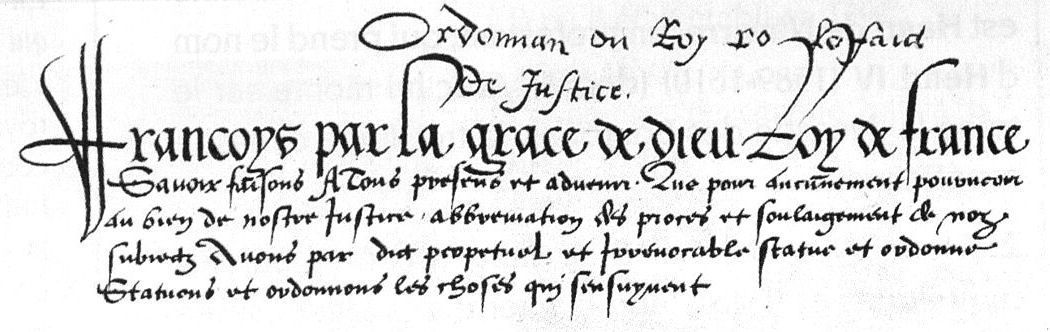 Ordonnan du Roy sur le faid
de Justice.
Francoys par la grace de dieu Roy de france
Savoir faisons A Tous presens et advenir. Que pour aucunement pourveoir
au bien de nostre Justice, abbreviation des proces et soulaigement de noz
subiectz Avons par edict perpetuel et Irrevocable statue et ordonne
Statuons et ordonnons les choses qui sensuyvent